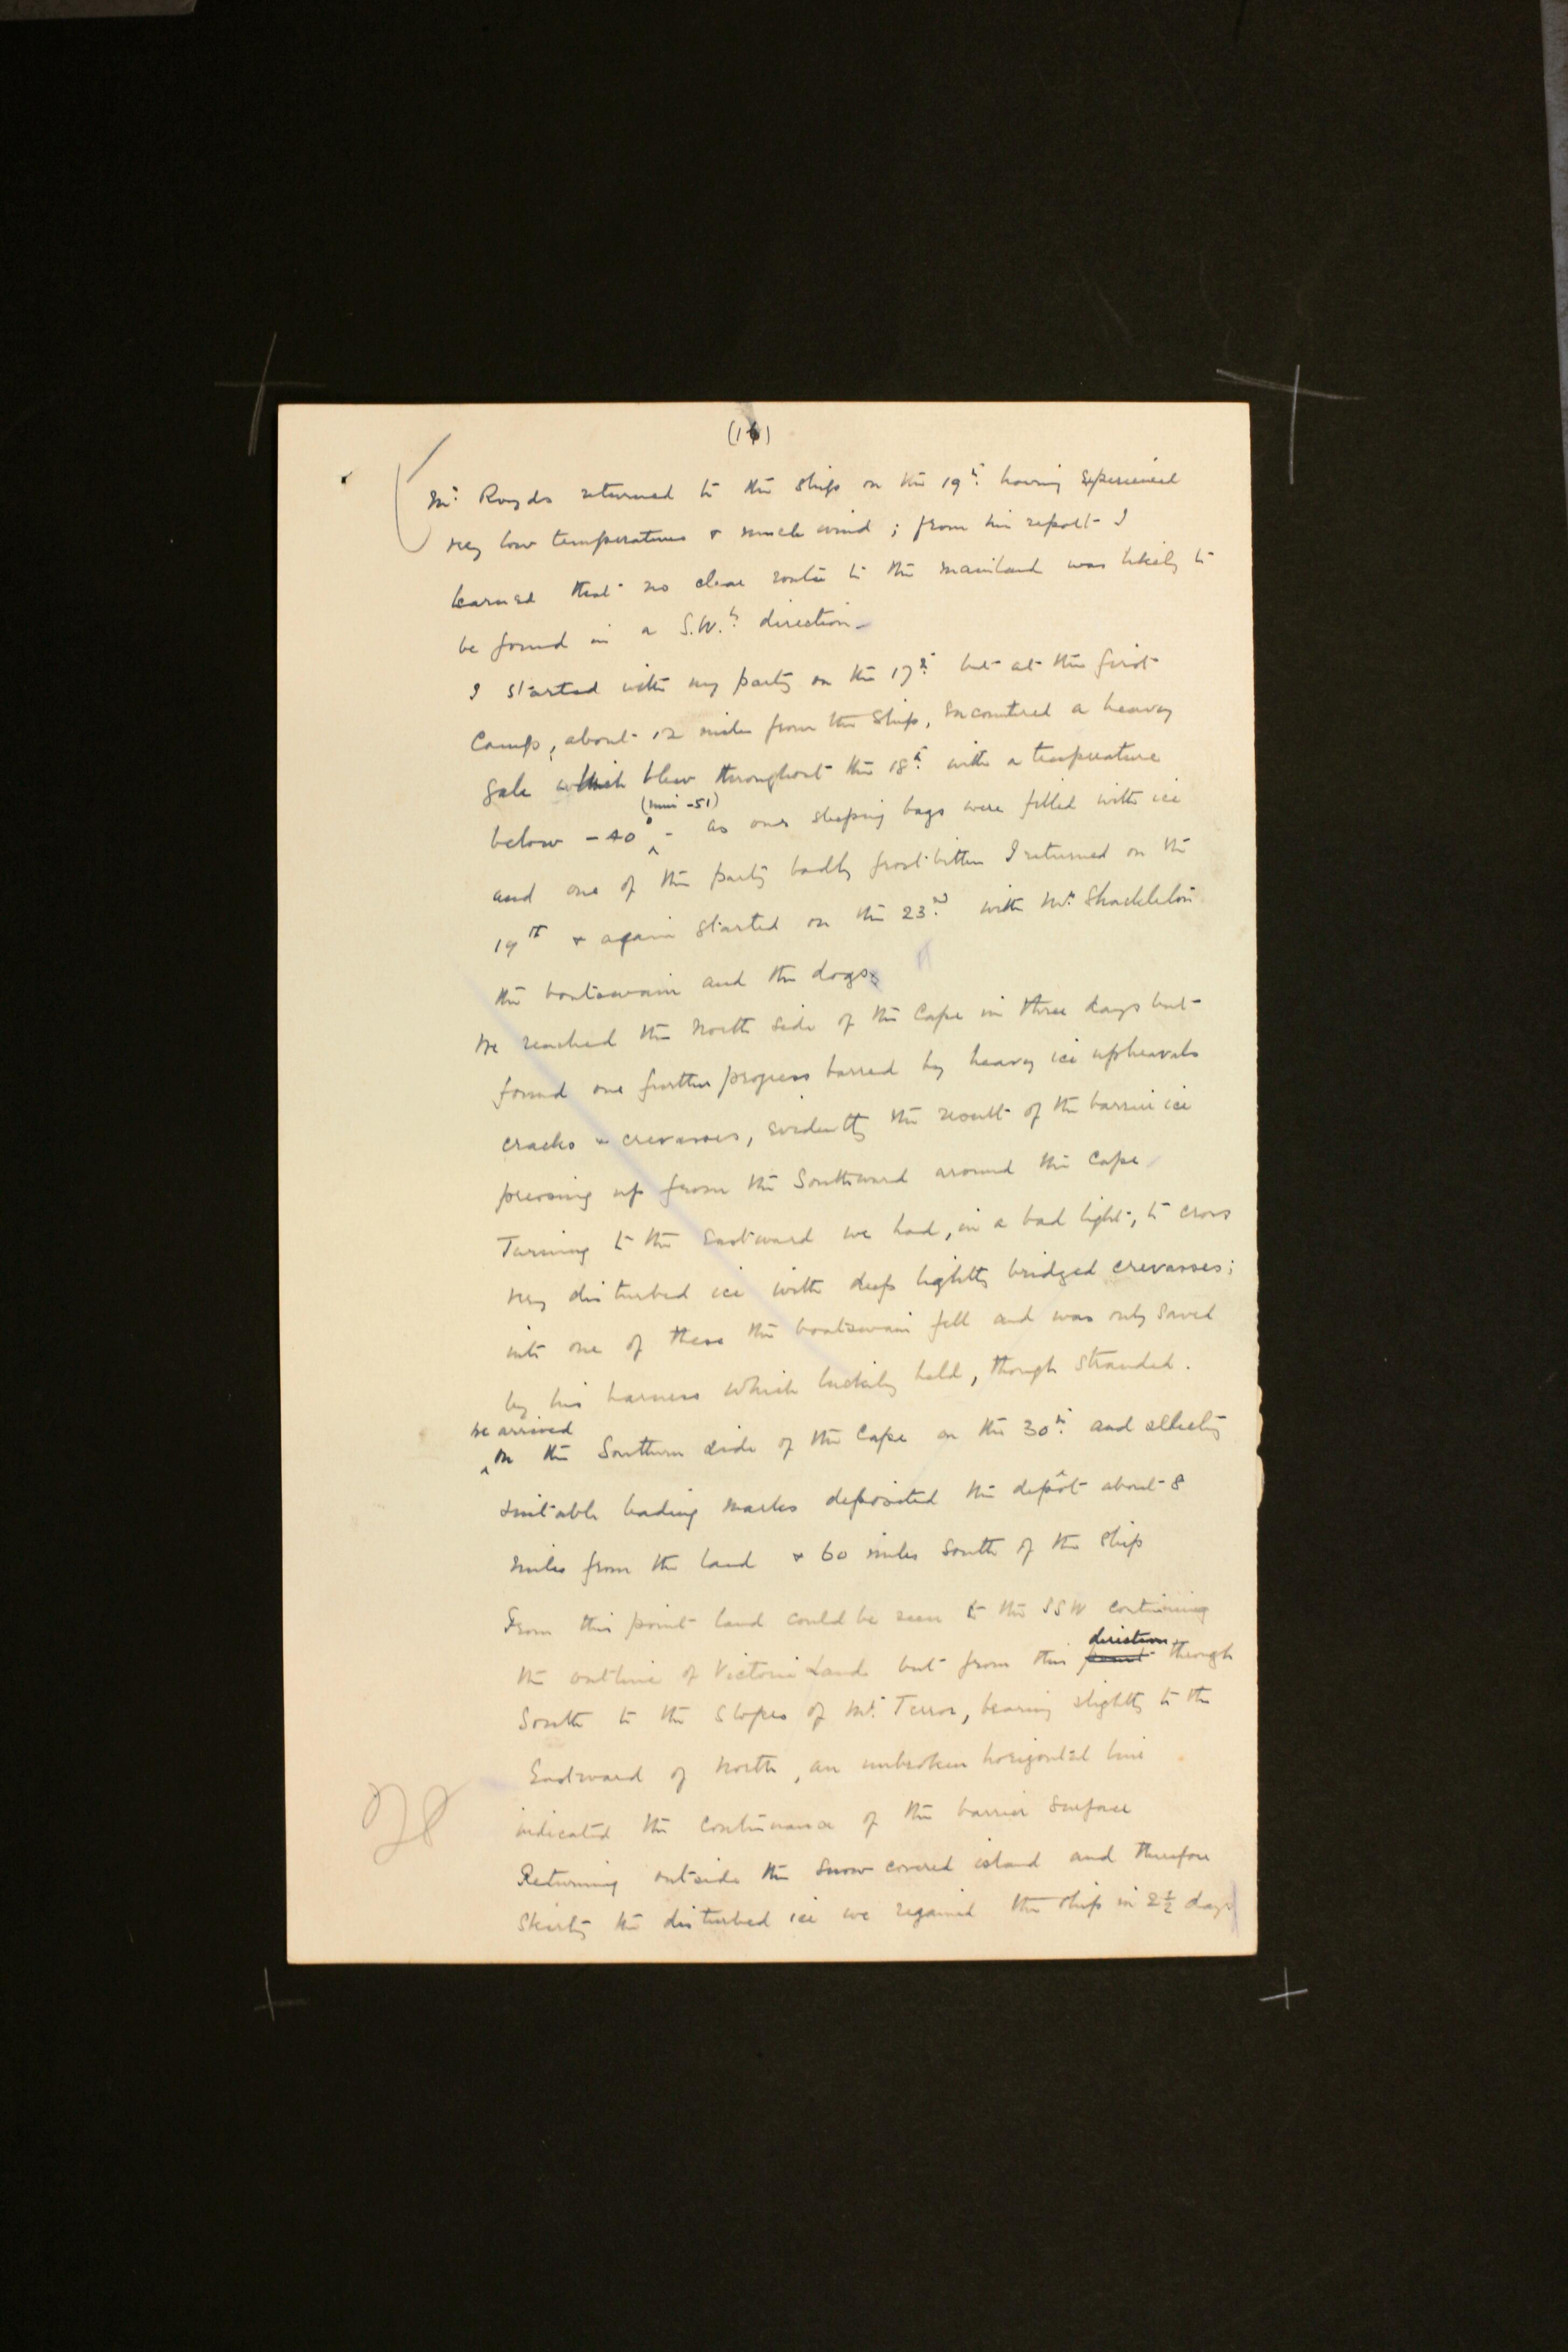 (16)
Mr. Royds returned to the ship on the 19th. having experienced
very low temperatures & much wind; from his report I
learned that no clear route to the mainland was likely to
be found in a S.W.ly direction_
I started with my party on the 17th. but at the first
Camp, about 12 miles from the Ship, encountered a heavy
gale which blew throughout the 18th. with a temperature
(min -51)
below -40° - as our sleeping bags were filled with ice
and one of the party badly frost-bitten I returned on the
19th & again started on the 23rd. with Mr. Shackleton
the boatswain and the dogs
We reached the North side of the Cape in three days but
found our further progress barred by heavy ice upheavals
cracks & crevasses, evidently the result of the barrier ice
pressing up from the Southward around the Cape
Turning to the Eastward we had, in a bad light, to cross
very disturbed ice with deep lightly bridged crevasses;
into one of these the boatswain fell and was only saved
by his harness which luckily held, though stranded.
we arrived
on the Southern side of the Cape on the 30th. and selecting
suitable leading marks deposited the depôt about 8
miles from the land & 60 miles South of the Ship
From this point land could be seen to the SSW continuing
direction
the outline of Victoria Land but from this point through
South to the Slopes of Mt. Terror, bearing slightly to the
Eastward of North, an unbroken horizontal line
indicated the continuance of the barrier surface
Returning outside the snow covered island and therefore
skirting the disturbed ice we regained the ship in 2½ days